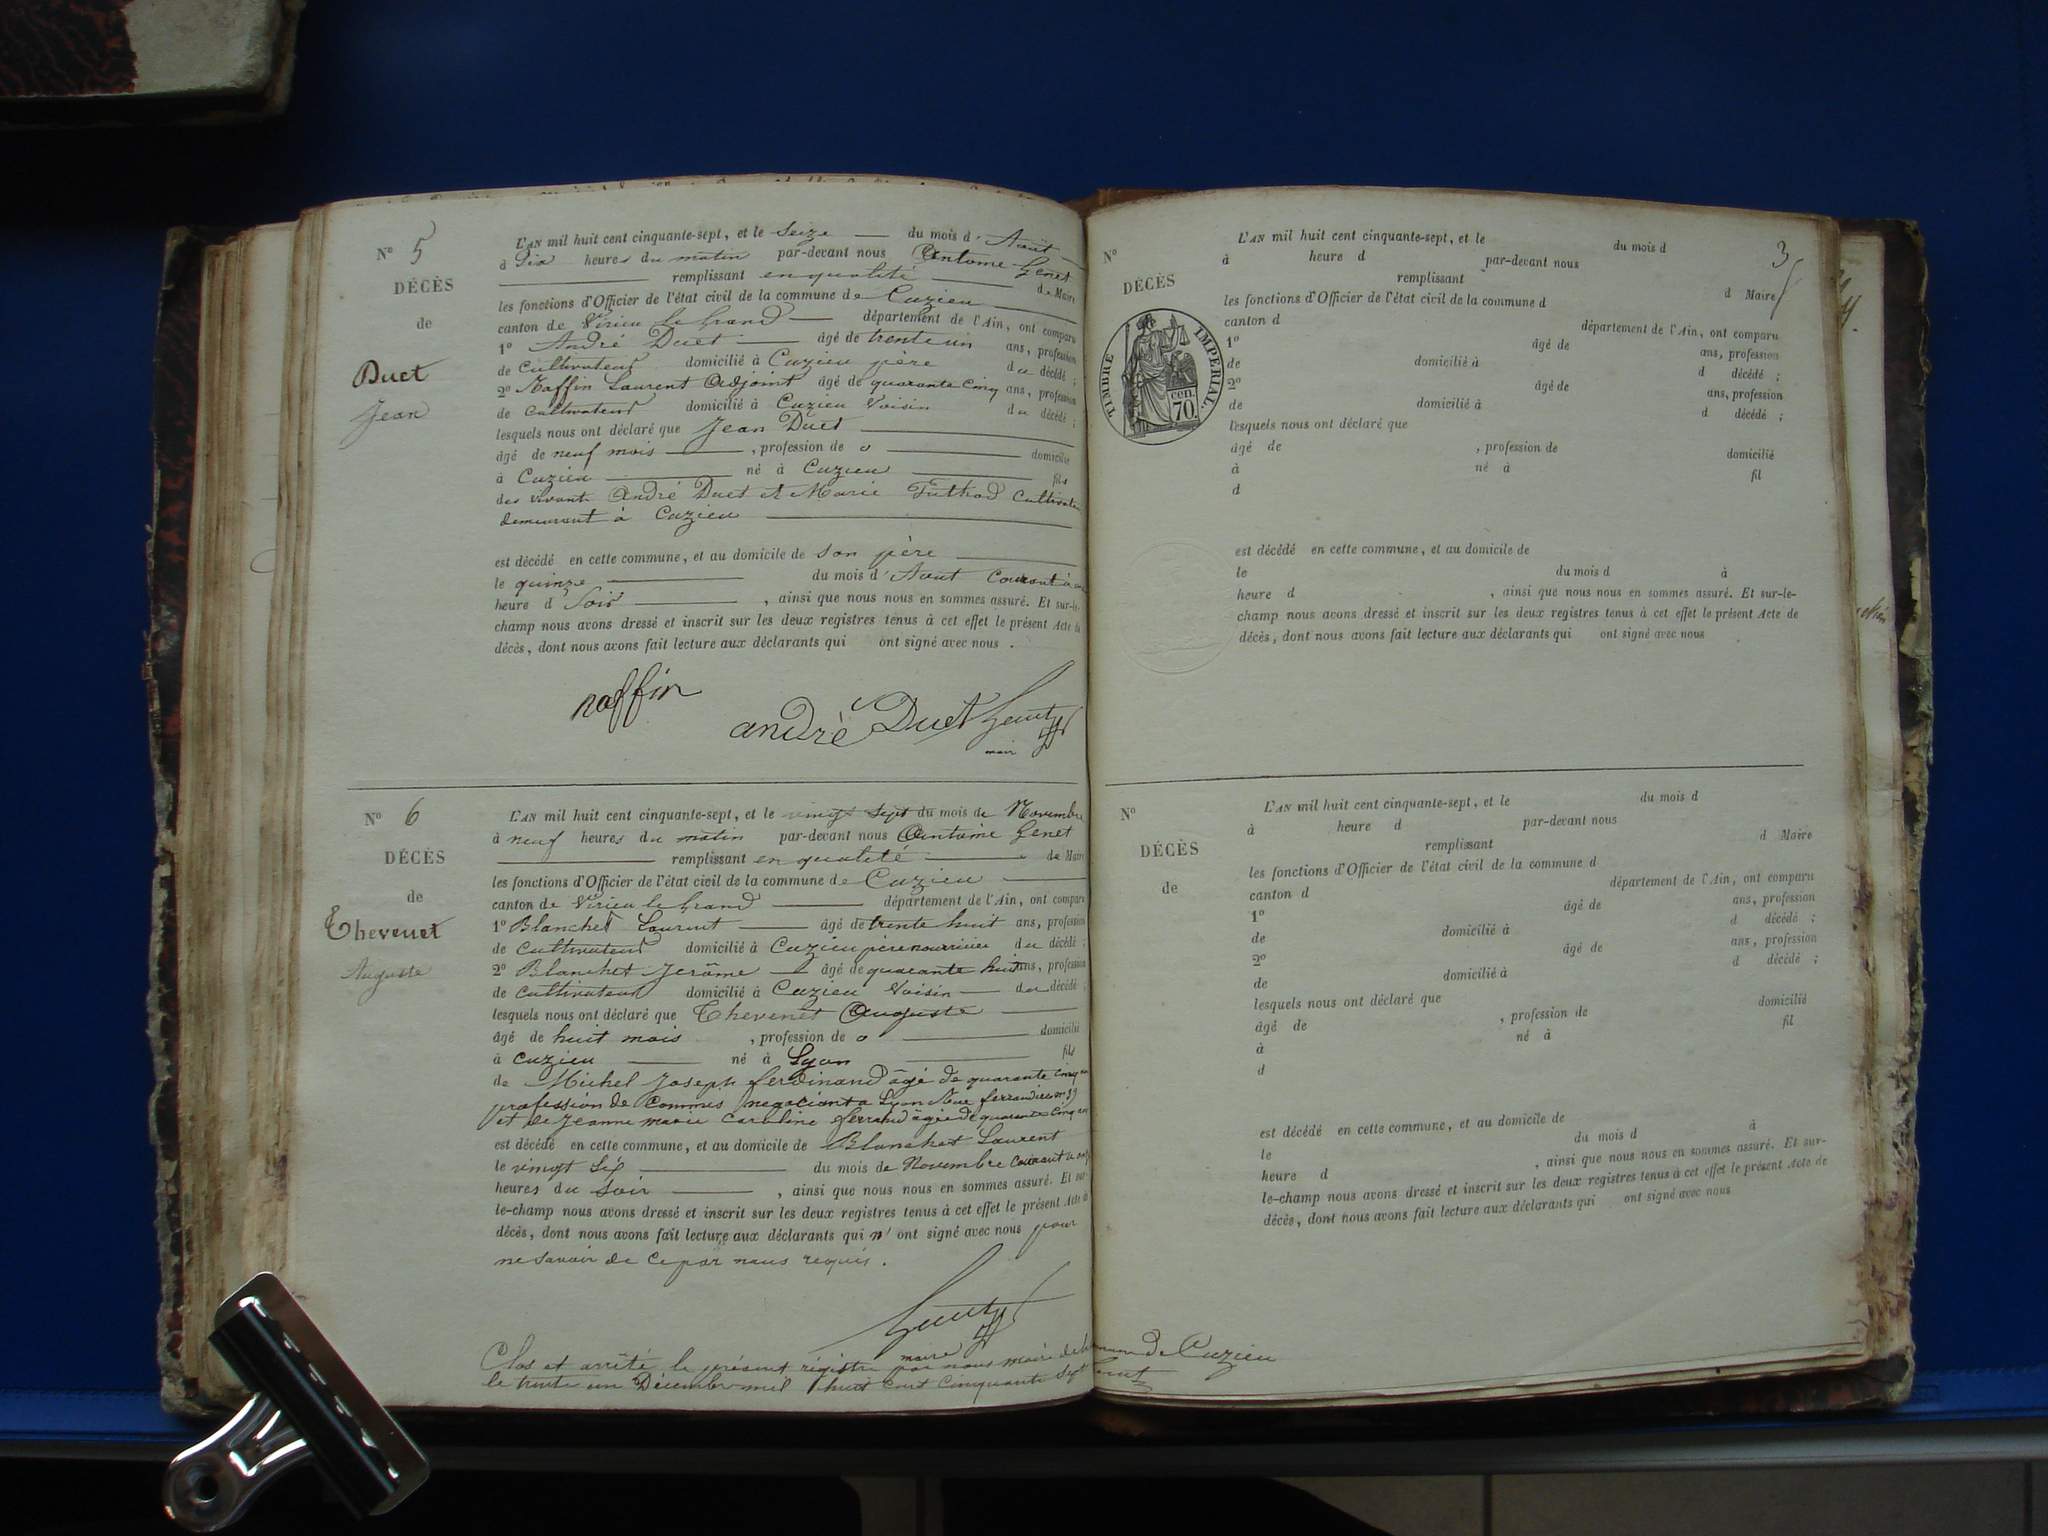 N° 5
DÉCÈS
de
Duet
Jean
L'AN mil huit cent cinquante-sept, et le Seize du mois d'Aout
à Dix heures du matin par-devant nous Antoine Genet
remplissant en qualité de Maire
les fonctions d'Officier de l'état civil de la commune de Cuzieu
canton de Virieu le Grand département de l'Ain, ont comparu
1° André Duet âgé de trente un ans, profession
de Cultivateur domicilié à Cuzieu père du décédé ;
2° Raffin Laurent Adjoint âgé de quarante Cinq ans, profession
de Cultivateur domicilié à Cuzieu Voisin du décédé ;
lesquels nous ont déclaré que Jean Duet
âgé de neuf mois , profession de o domicilié
à Cuzieu né à Cuzieu fils
des vivants André Duet et Marie Cultivateur
demeurant à Cuzieu
est décédé en cette commune, et au domicile de son père
le quinze du mois d'Aout Courant à
heure d Soir , ainsi que nous nous en sommes assuré. Et sur-le-
champ nous avons dressé et inscrit sur les deux registres tenus à cet effet le présent Acte de
décès, dont nous avons fait lecture aux déclarants qui ont signé avec nous .
raffin
andré Duet Genet
mair
N° 6
DÉCÈS
de
Thevenet
Auguste
L'AN mil huit cent cinquante-sept, et le vingt sept du mois de Novembre
à neuf heures du matin par-devant nous Antoine Genet
remplissant en qualité de Maire
les fonctions d'Officier de l'état civil de la commune de Cuzieu
canton de Virieu le Grand département de l'Ain, ont comparu
1° Blanchet Laurent âgé de trente huit ans, profession
de Cultivateur domicilié à Cuzieu père nourricier du décédé ;
2° Blanchet Jerôme âgé de quarante huit ans, profession
de Cultivateur domicilié à Cuzieu Voisin du décédé ;
lesquels nous ont déclaré que Thevenet Auguste
âgé de huit mois , profession de o domicilié
à Cuzieu né à Lyon fils
de Michel Joseph ferdinand âgé de quarante cinq
profession de Commis negociant a Lyon Rue ferrandiere n°
et de Jeanne marie Caroline ferrand âgée de quarante Cinq
est décédé en cette commune, et au domicile de Blanchet Laurent
le vingt Six du mois de Novembre Courant
heures du Soir , ainsi que nous nous en sommes assuré. Et sur-
le-champ nous avons dressé et inscrit sur les deux registres tenus à cet effet le présent Acte de
décès, dont nous avons fait lecture aux déclarants qui n' ont signé avec nous pour
ne savoir de Ce par nous requis .
Genet
maire
Clos et arrêté le présent régistre par nous maire de la commune de Cuzieu
le trente un Décembre mil huit cent Cinquante Sept Genet
3
N°
DÉCÈS
TIMBRE IMPERIAL.
cen.
70.
L'AN mil huit cent cinquante-sept, et le du mois d
à heure d par-devant nous
remplissant d Maire
les fonctions d'Officier de l'état civil de la commune d
canton d département de l'Ain, ont comparu
1° âgé de ans, profession
de domicilié à d décédé ;
2° âgé de ans, profession
de domicilié à d décédé ;
lesquels nous ont déclaré que
âgé de , profession de domicilié
à né à fil
d
est décédé en cette commune, et au domicile de
le du mois d à
heure d , ainsi que nous nous en sommes assuré. Et sur-le-
champ nous avons dressé et inscrit sur les deux registres tenus à cet effet le présent Acte de
décès, dont nous avons fait lecture aux déclarants qui ont signé avec nous
N°
DÉCÈS
de
L'AN mil huit cent cinquante-sept, et le du mois d
à heure d par-devant nous
remplissant d Maire
les fonctions d'Officier de l'état civil de la commune d
canton d département de l'Ain, ont comparu
1° âgé de ans, profession
de domicilié à d décédé ;
2° âgé de ans, profession
de domicilié à d décédé ;
lesquels nous ont déclaré que
âgé de , profession de domicilié
à né à fil
d
est décédé en cette commune, et au domicile de
le du mois d à
heure d , ainsi que nous nous en sommes assuré. Et sur-
le-champ nous avons dressé et inscrit sur les deux registres tenus à cet effet le présent Acte de
décès, dont nous avons fait lecture aux déclarants qui ont signé avec nous